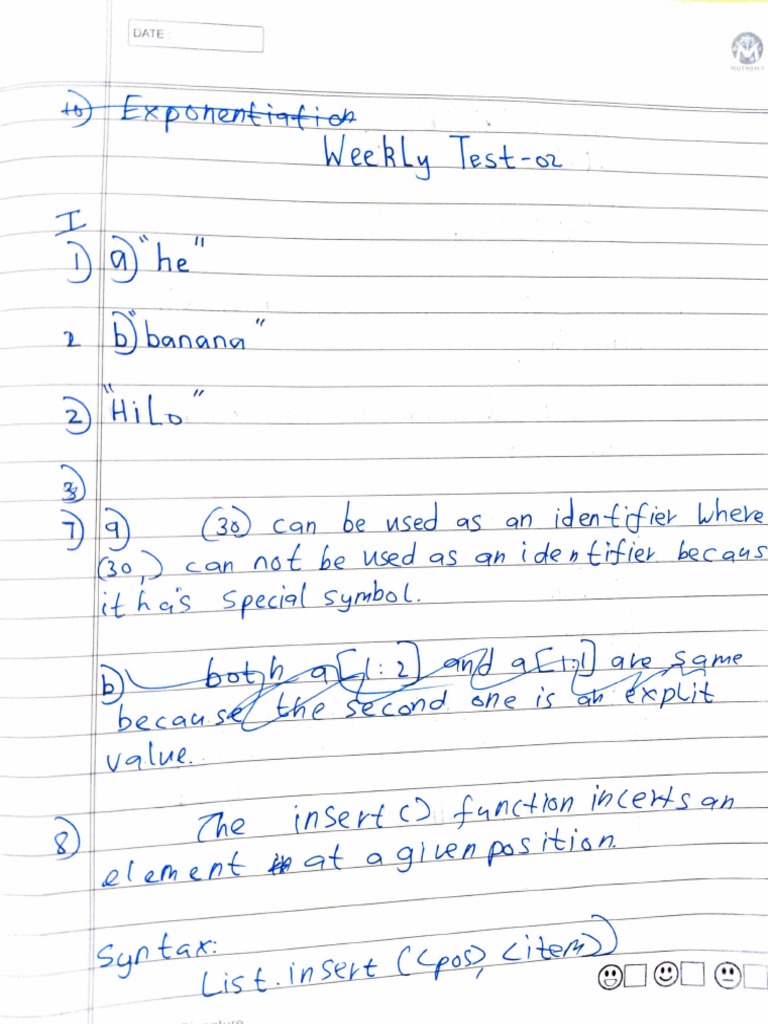 DATE :
10) Exponentiation
Weekly Test-02
I
1) a) "he"
2 b) "banana"
2) "HiLo"
3)
7) a) (30) can be used as an identifier where
(30,) can not be used as an identifier becaus
it has special symbol.
b) both a[1:2] and a[1:1] are same
because the second one is an explit
value.
8) The insert() function incerts an
element at a given position.
Syntax:
List.insert (<pos>, <item>)